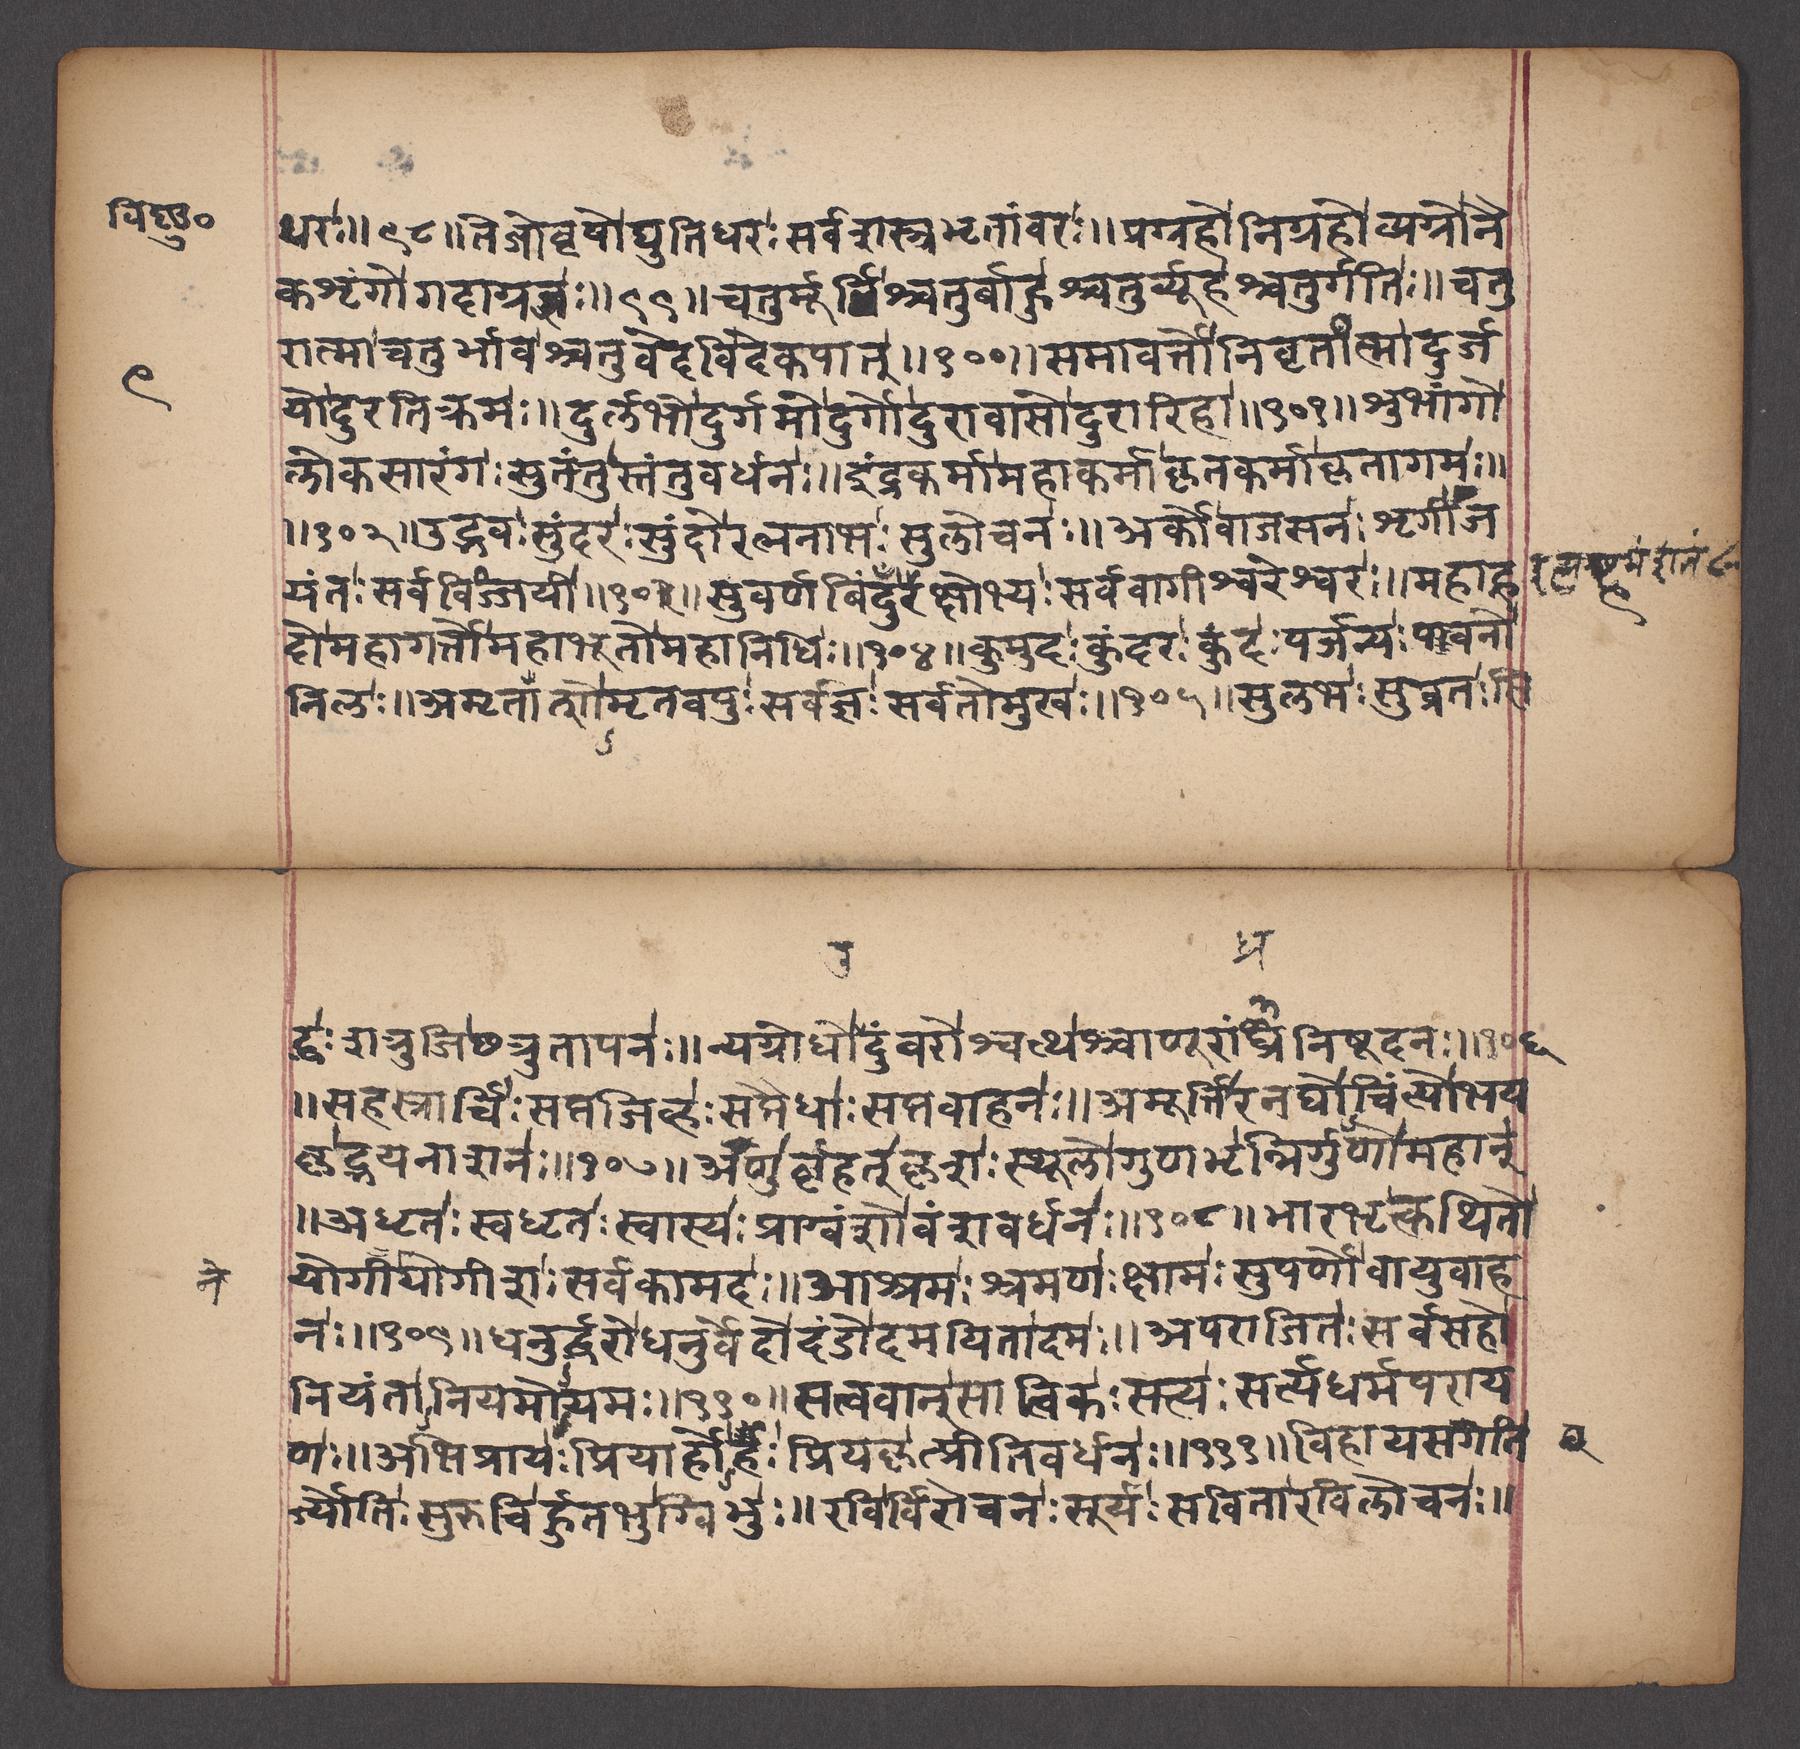 विष्णु०
धरः॥९८॥तेजोवृषोद्युतिधरःसर्वशस्त्रभृतांवरः॥प्रग्रहोनिग्रहोव्यग्रोनै
कशृंगोगदाग्रजः॥९९॥चतुर्मूर्त्तिश्चतुर्बाहुश्चतुर्व्यूहश्चतुर्गतिः॥चतु
रात्माचतुर्भावश्चतुर्वेदविदेकपात्॥१००॥समावर्त्तोनिवृत्तात्मादुर्ज
९
योदुरतिक्रमः॥दुर्लभोदुर्गमोदुर्गोदुरावासोदुरारिहा॥१०१॥शुभांगो
लोकसारंगःसुतंतुस्तंतुवर्धनः॥इंद्रकर्मामहाकर्माकृतकर्माकृतागमः॥
॥१०२॥उद्भवःसुंदरःसुंदोरत्ननाभःसुलोचनः॥अर्कोवाजसनःशृंगीज
यंतःसर्वविज्जयी॥१०३॥सुवर्णबिंदुरक्षोभ्यःसर्ववागीश्वरेश्वरः॥महाह्र
दोमहागर्त्तोमहाभूतोमहानिधिः॥१०४॥कुमुदःकुंदरःकुंदःपर्जन्यःपावनो
निलः॥अमृतांशोमृतवपुःसर्वज्ञःसर्वतोमुखः॥१०५॥सुलभःसुव्रतःसि
ऽ
दु
ध्र
द्धःशत्रुजिछत्रुतापनः॥न्यग्रोधोदुंबरोश्वत्थश्चाणूरांध्रनिषूदनः॥१०६
॥सहस्रार्चिःसप्तजिव्हःसप्तैधाःसप्तवाहनः॥अमूर्त्तिरनघोचिंत्योभय
कृद्भयनाशनः॥१०७॥अणुर्बृहत्कृशःस्थूलोगुणभृन्निर्गुणोमहान्
॥अधृतःस्वधृतःस्वास्यःप्राग्वंशोवंशवर्धनः॥१०८॥भारभृत्कथितो
ने
योगीयोगीशःसर्वकामदः॥आश्रमःश्रमणःक्षामःसुपर्णोवायुवाह
नः॥१०९॥धनुर्द्धरोधनुर्वेदोदंडोदमयितादमः॥अपराजितःसर्वसहो
नियंतानियमोयमः॥११०॥सत्ववान्सात्विकःसत्यःसत्यधर्मपराय
णः॥अभिप्रायःप्रियार्होर्हःप्रियकृत्प्रीतिवर्धनः॥१११॥विहायसगति
र्ज्योतिःसुरुचिर्हुतभुग्विभुः॥रविर्विरोचनःसूर्यःसवितारविलोचनः॥